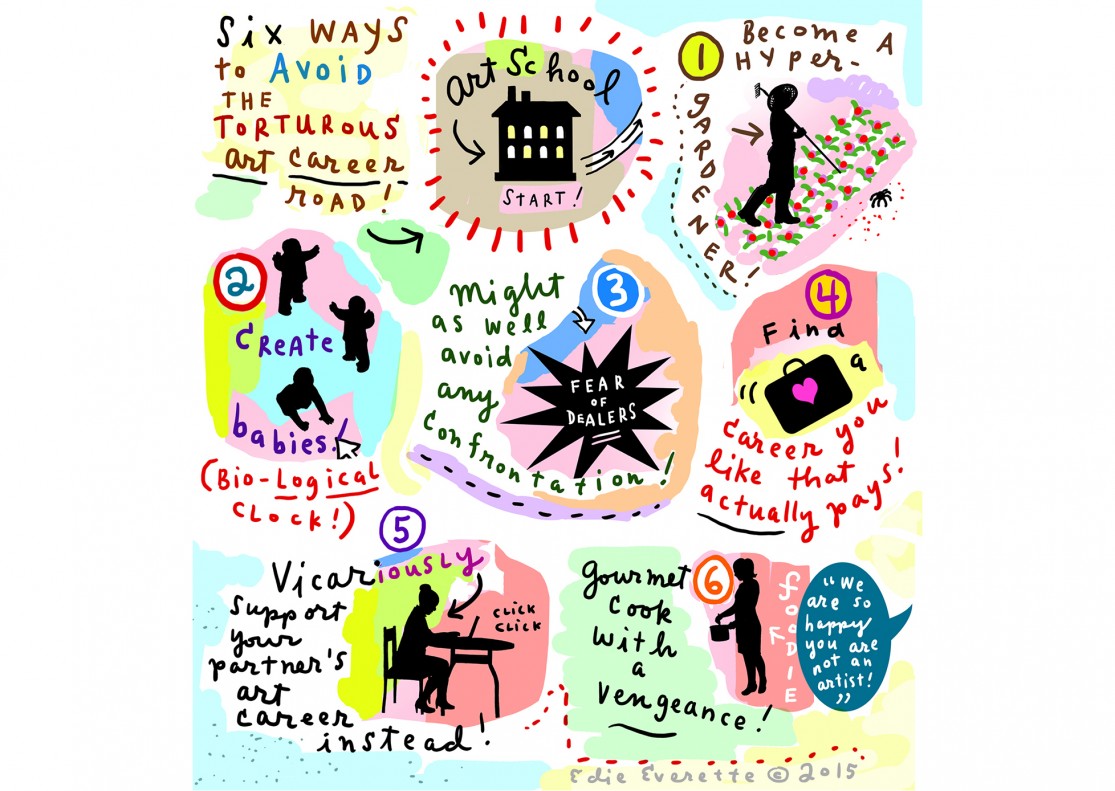 Six WAYS
to AVOID
THE
TORTUROUS
art career
ROAD!
art School
START!
1
Become A
Hyper-
gARDENER!
2
CREAte
babies!
(Bio-Logical
CLOCK!)
3
Might
as well
avoid
any
confrontation!
FEAR
OF
DEALERS
4
Find
a
career you
like that
actually pays!
5
Vicariously
Support
your
partner's
art
career
instead!
CLICK
CLICK
6
gourmet
cook
with
a
vengeance!
fooDIE
"We
are so
happy
you are
not an
artist!
"
Edie Everette © 2015